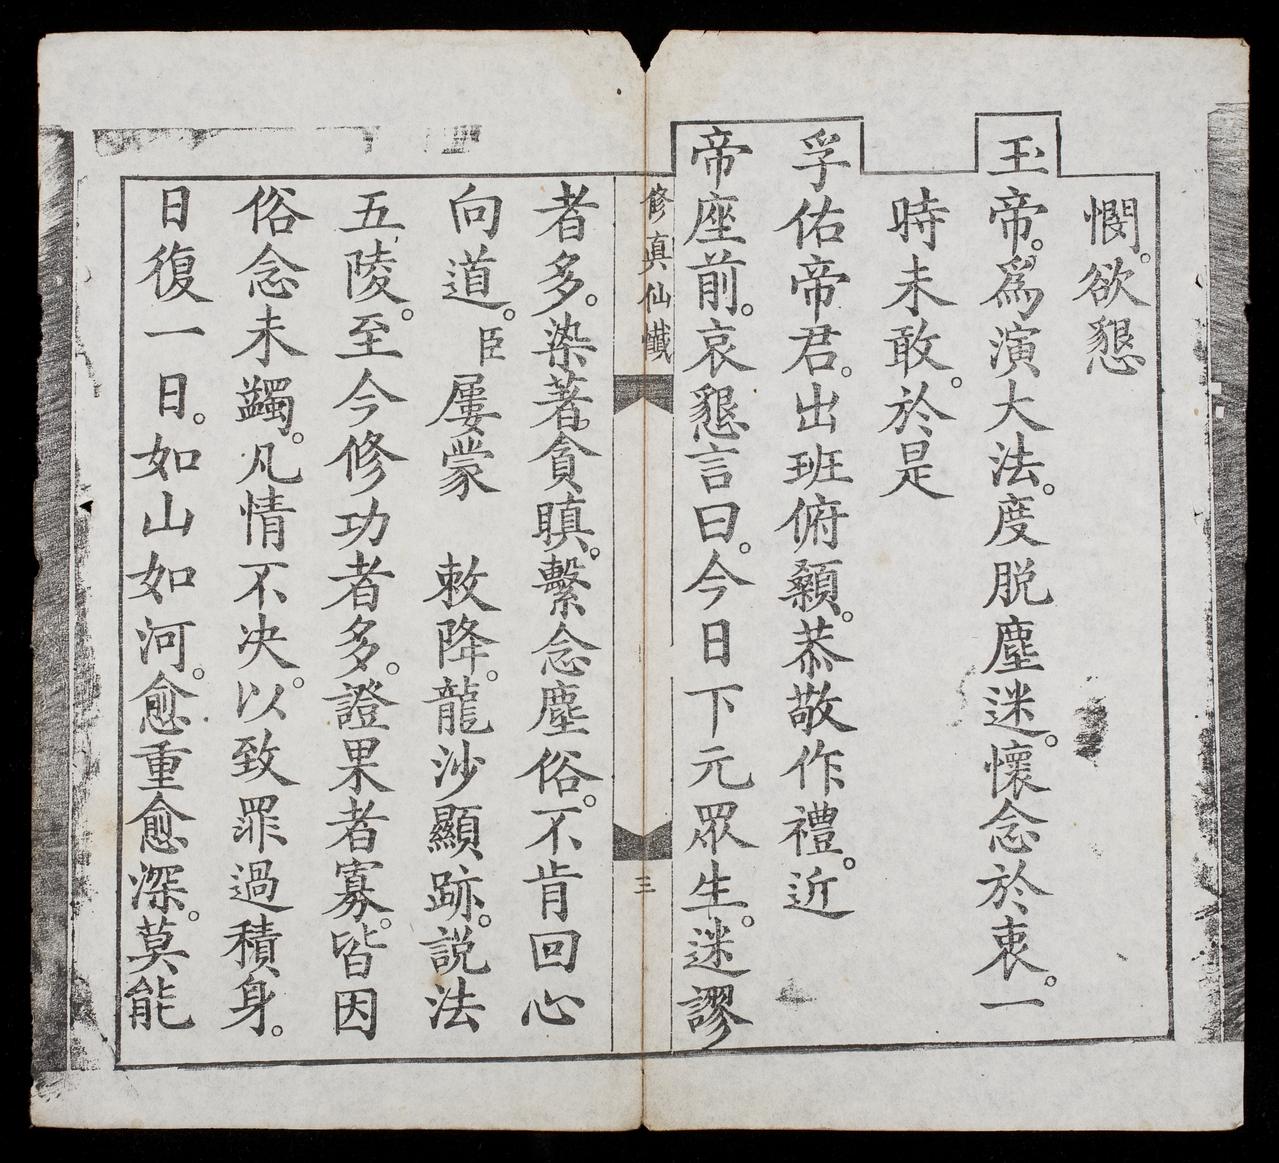 憫。欲懇
玉帝。爲演大法。度脱塵迷。懷念於衷。一
時未敢。於是
孚佑帝君。出班俯顙。恭敬作禮。近
帝座前。哀懇言曰。今日下元眾生。迷謬
修真仙懺
三
者多。染著。貪瞋。繫念塵俗。不肯回心
向道。臣屢蒙　敕降。龍沙顯跡。説法
五陵。至今修功者多。證果者寡。皆因
俗念未蠲。凡情不决。以致罪過積身。
日復一日。如山如河。愈重愈深。莫能